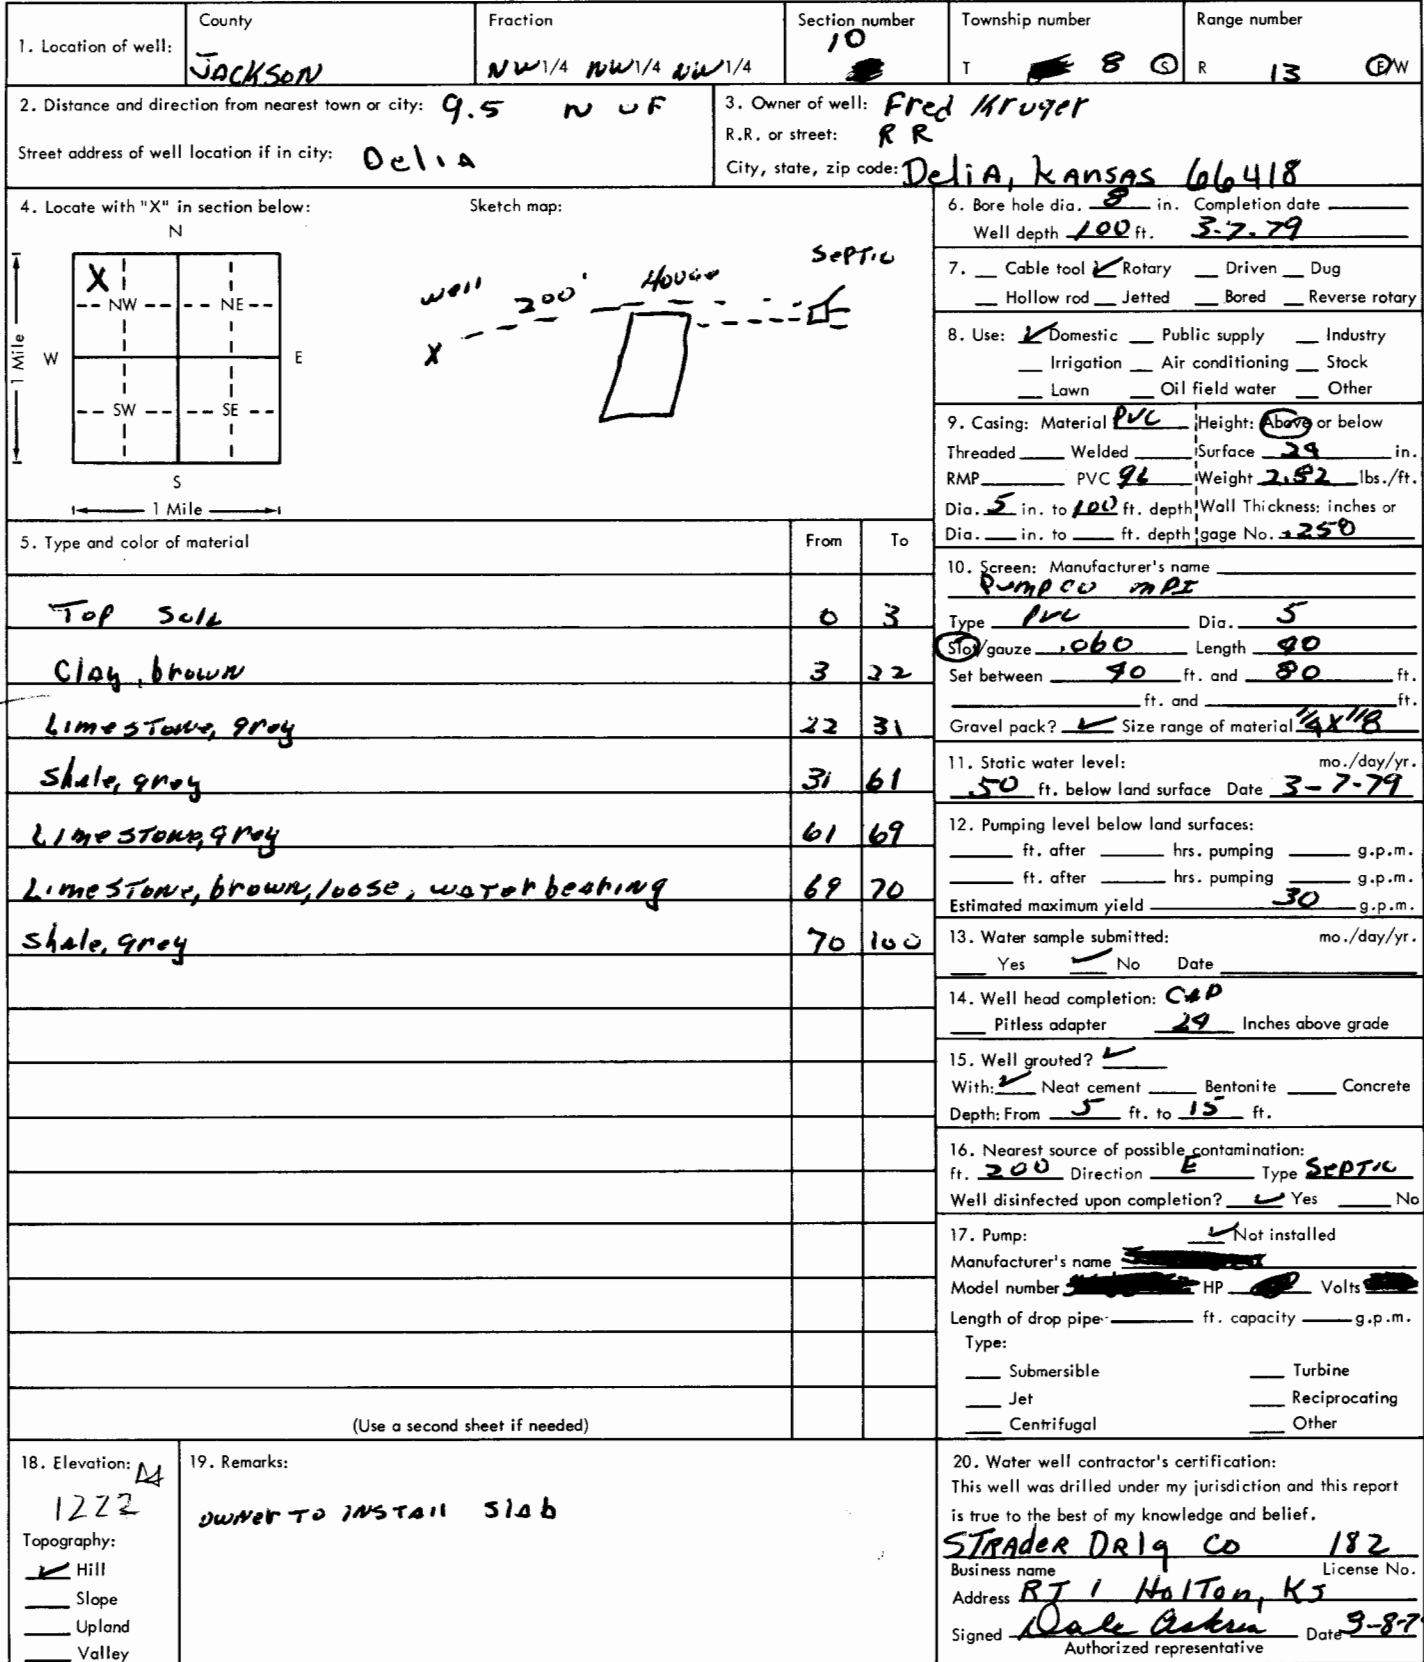 1. Location of well: County JACKSON Fraction NW 1/4 NW 1/4 NW 1/4 Section number 10 Township number T 8 S Range number R 13 E/W
2. Distance and direction from nearest town or city: 9.5 N OF
Street address of well location if in city: Delia
3. Owner of well: Fred Kruger
R.R. or street: R R
City, state, zip code: Delia, Kansas 66418
4. Locate with "X" in section below:
Sketch map:
N
X
NW NE
W E
SW SE
S
1 Mile
1 Mile
well 200' House Septic
X
5. Type and color of material From To
Top Soil 0 3
Clay, brown 3 22
Limestone, grey 22 31
Shale, grey 31 61
Limestone, grey 61 69
Limestone, brown, loose, water bearing 69 70
Shale, grey 70 100
(Use a second sheet if needed)
6. Bore hole dia. 8 in. Completion date
Well depth 100 ft. 3-7-79
7. Cable tool ✓ Rotary Driven Dug
Hollow rod Jetted Bored Reverse rotary
8. Use: ✓ Domestic Public supply Industry
Irrigation Air conditioning Stock
Lawn Oil field water Other
9. Casing: Material PVC Height: Above or below
Threaded Welded Surface 24 in.
RMP PVC Weight 2.82 lbs./ft.
Dia. 5 in. to 100 ft. depth Wall Thickness: inches or
Dia. in. to ft. depth gage No. .250
10. Screen: Manufacturer's name
Pumpco MPI
Type PVC Dia. 5
Slot/gauze .060 Length 40
Set between 40 ft. and 80 ft.
ft. and ft.
Gravel pack? ✓ Size range of material 1/4 x 1/8
11. Static water level: mo./day/yr.
50 ft. below land surface Date 3-7-79
12. Pumping level below land surfaces:
ft. after hrs. pumping g.p.m.
ft. after hrs. pumping g.p.m.
Estimated maximum yield 30 g.p.m.
13. Water sample submitted: mo./day/yr.
Yes ✓ No Date
14. Well head completion: CAP
Pitless adapter 24 Inches above grade
15. Well grouted? ✓
With: ✓ Neat cement Bentonite Concrete
Depth: From 5 ft. to 15 ft.
16. Nearest source of possible contamination:
ft. 200 Direction E Type Septic
Well disinfected upon completion? ✓ Yes No
17. Pump: ✓ Not installed
Manufacturer's name
Model number HP Volts
Length of drop pipe ft. capacity g.p.m.
Type:
Submersible Turbine
Jet Reciprocating
Centrifugal Other
18. Elevation:
1222
Topography:
✓ Hill
Slope
Upland
Valley
19. Remarks:
owner to install slab
20. Water well contractor's certification:
This well was drilled under my jurisdiction and this report
is true to the best of my knowledge and belief.
STRADER DRlg CO 182
Business name License No.
Address RT 1 Holton, KS
Signed Dale Date 3-8-7
Authorized representative